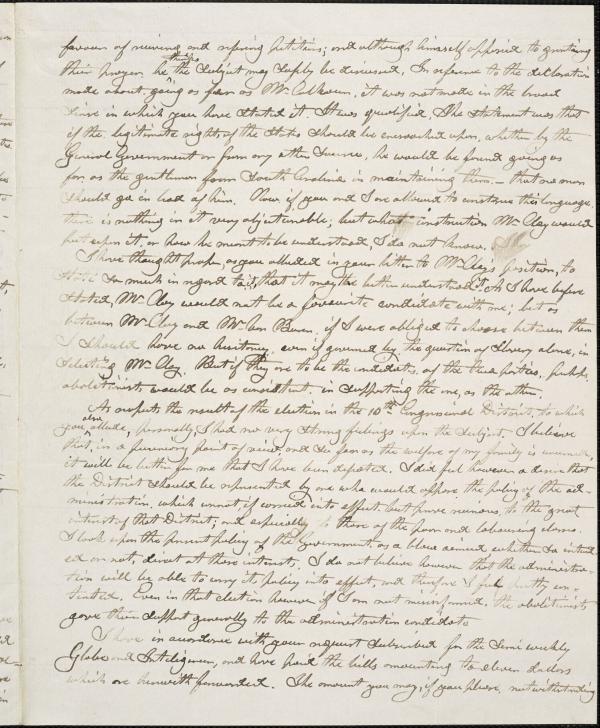 favour of receiving and refering petitions; and although himself opposed to granting
their prayer he thinks the subject may safely be discussed. In reference to the declaration
made about going as far as Mr. Calhoun, it was not made in the broad
sense in which you have stated it. It was qualified. The statement was that
if the legitimate rights of the States should be encroached upon, whether by the
General Government or from any other source, he would be found going as
far as the gentleman from South Carolina in maintaining them — that no man
should go in lead of him. Now if you and I are allowed to construe this language,
there is nothing in it very objectionable; but what construction Mr Clay would
put upon it, or how he meant to be understood I do not know.
I have thought proper, as you alluded in your letter to Mr Clay's position, to
state so much in regard to it, that it may be better understood. As I have before
stated, Mr Clay would not be a favourite candidate with me; but as
between Mr Clay and Mr Van Buren, if I were obliged to choose between them
I should have no hesitancy, even if governed by the question of slavery alone, in
selecting Mr Clay. But if they are to be the candidates of the two parties,
abolitionists would be as consistent in supporting the one, as the other.
As respects the result of the election in the 10th Congressional District, to which
you also allude, personally, I had no very strong feelings upon the subject. I believe
that, in a pecuniary point of view, and so far as the welfare of my family is concerned,
it will be better for me that I have been defeated. I did feel however a desire that
the District should be represented by one who would oppose the policy of the ad-
ministration, which cannot if carried into effect but prove ruinous, to the great
interests of that District; and especially to those of the poor and labouring classes.
I look upon the present policy of the Government, as a blow aimed whether so intend-
ed or not, direct at those interests. I do not believe however that the administra-
tion will be able to carry its policy into effect, and therefore I feel pretty con-
tented. Even in that election however if I am not misinformed, the abolitionists
gave their support generally to the administration candidate.
I have in accordance with your request subscribed for the Semi weekly
Globe and Intelligencer, and have paid the bills amounting to eleven dollars
which are herewith forwarded. The amount you may, if you please, notwithstanding